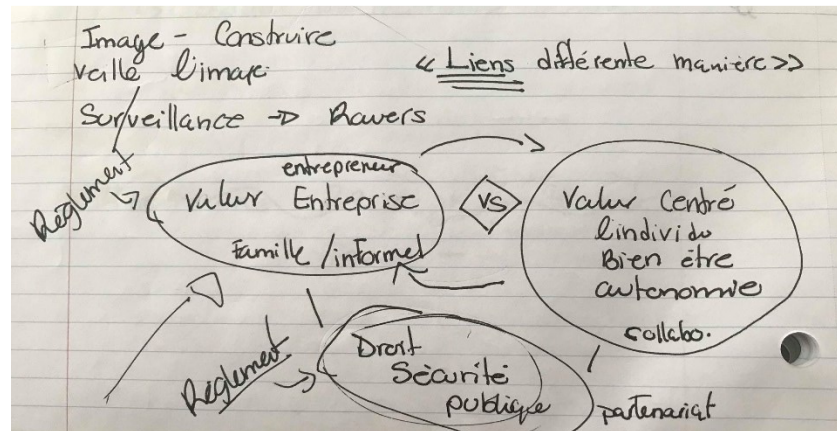 Image - Construire
veille l'image
« Liens différente manière »
Surveillance → Ravers
Règlement
entrepreneur
Valeur Entreprise
Famille / informel
VS
Valeur Centré
l'individu
Bien être
autonomie
collabo.
Règlement
Droit
Sécurité
publique
partenariat